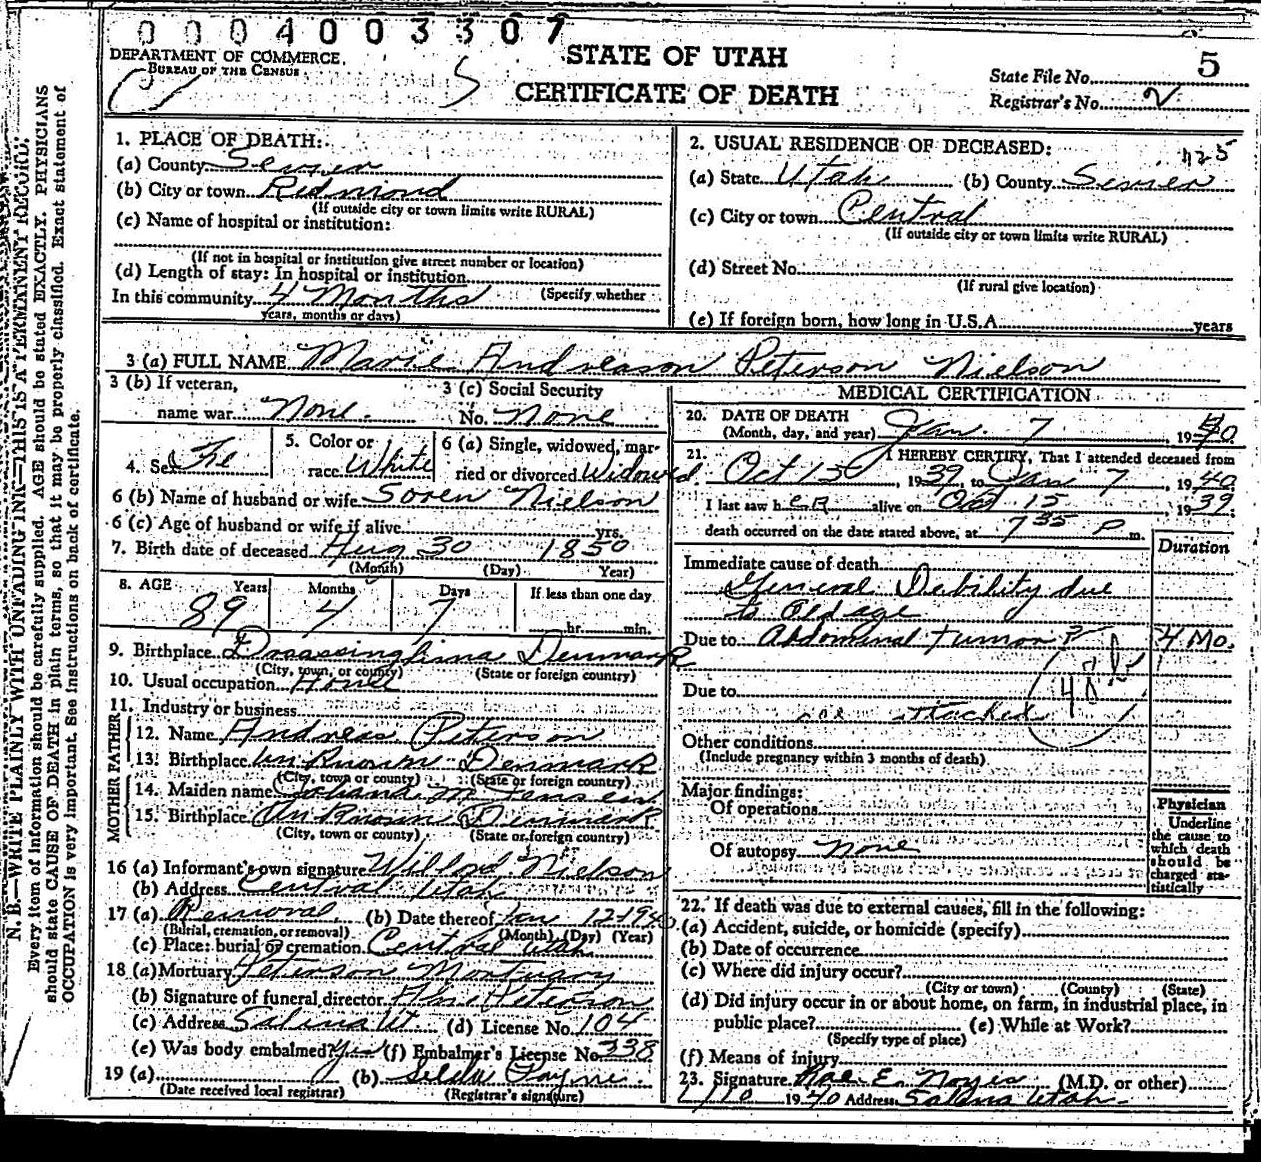 0004003307
DEPARTMENT OF COMMERCE
BUREAU OF THE CENSUS
STATE OF UTAH
CERTIFICATE OF DEATH
State File No. 5
Registrar's No. 2
N. B.—WRITE PLAINLY WITH UNFADING INK—THIS IS A PERMANENT RECORD.
Every item of information should be carefully supplied. AGE should be stated EXACTLY. PHYSICIANS
should state CAUSE OF DEATH in plain terms, so that it may be properly classified. Exact statement of
OCCUPATION is very important. See instructions on back of certificate.
1. PLACE OF DEATH:
(a) County Sevier
(b) City or town Redmond
(If outside city or town limits write RURAL)
(c) Name of hospital or institution:
(If not in hospital or institution give street number or location)
(d) Length of stay: In hospital or institution
In this community 4 Months (Specify whether
years, months or days)
2. USUAL RESIDENCE OF DECEASED: 1125
(a) State Utah (b) County Sevier
(c) City or town Central
(If outside city or town limits write RURAL)
(d) Street No.
(If rural give location)
(e) If foreign born, how long in U.S.A. years
3 (a) FULL NAME Marie Andreason Peterson Nielson
3 (b) If veteran,
name war None.
3 (c) Social Security
No. None
4. Sex Fe
5. Color or
race White
6 (a) Single, widowed, mar-
ried or divorced Widowed
6 (b) Name of husband or wife Soren Nielson
6 (c) Age of husband or wife if alive yrs.
7. Birth date of deceased Aug 30 1850
(Month) (Day) Year)
8. AGE Years Months Days If less than one day
89 4 7 hr. min.
9. Birthplace Denmark
(City, town, or county) (State or foreign country)
10. Usual occupation Home
11. Industry or business
FATHER
12. Name Andreas Peterson
13. Birthplace Unknown Denmark
(City, town or county) (State or foreign country)
MOTHER
14. Maiden name Johana M Jensen
15. Birthplace Unknown Denmark
(City, town or county) (State or foreign country)
16 (a) Informant's own signature Willord Nielson
(b) Address Central Utah
17 (a) Removal (b) Date thereof Jan 12 1940
(Burial, cremation, or removal) (Month) (Day) (Year)
(c) Place: burial or cremation Central Utah
18 (a) Mortuary Peterson Mortuary
(b) Signature of funeral director Peterson
(c) Address Salina Ut. (d) License No. 104
(e) Was body embalmed? Yes (f) Embalmer's License No. 338
19 (a) (b) Selda Payne.
(Date received local registrar) (Registrar's signature)
MEDICAL CERTIFICATION
20. DATE OF DEATH
(Month, day, and year) Jan. 7, 1940
21. I HEREBY CERTIFY, That I attended deceased from
Oct 13, 1939, to Jan 7, 1940
I last saw her alive on Oct 15, 1939.
death occurred on the date stated above, at 7 35 P m.
Duration
Immediate cause of death
General Debility due
to Old age
Due to Abdominal tumor? 4 Mo.
Due to
see attached
Other conditions
(Include pregnancy within 3 months of death)
Major findings:
Of operations
Of autopsy None
Physician
Underline
the cause to
which death
should be
charged sta-
tistically
22. If death was due to external causes, fill in the following:
(a) Accident, suicide, or homicide (specify)
(b) Date of occurrence
(c) Where did injury occur?
(City or town) (County) (State)
(d) Did injury occur in or about home, on farm, in industrial place, in
public place? (e) While at Work?
(Specify type of place)
(f) Means of injury
23. Signature Rae E. Noyes (M.D. or other)
1/10 1940 Address Salina Utah